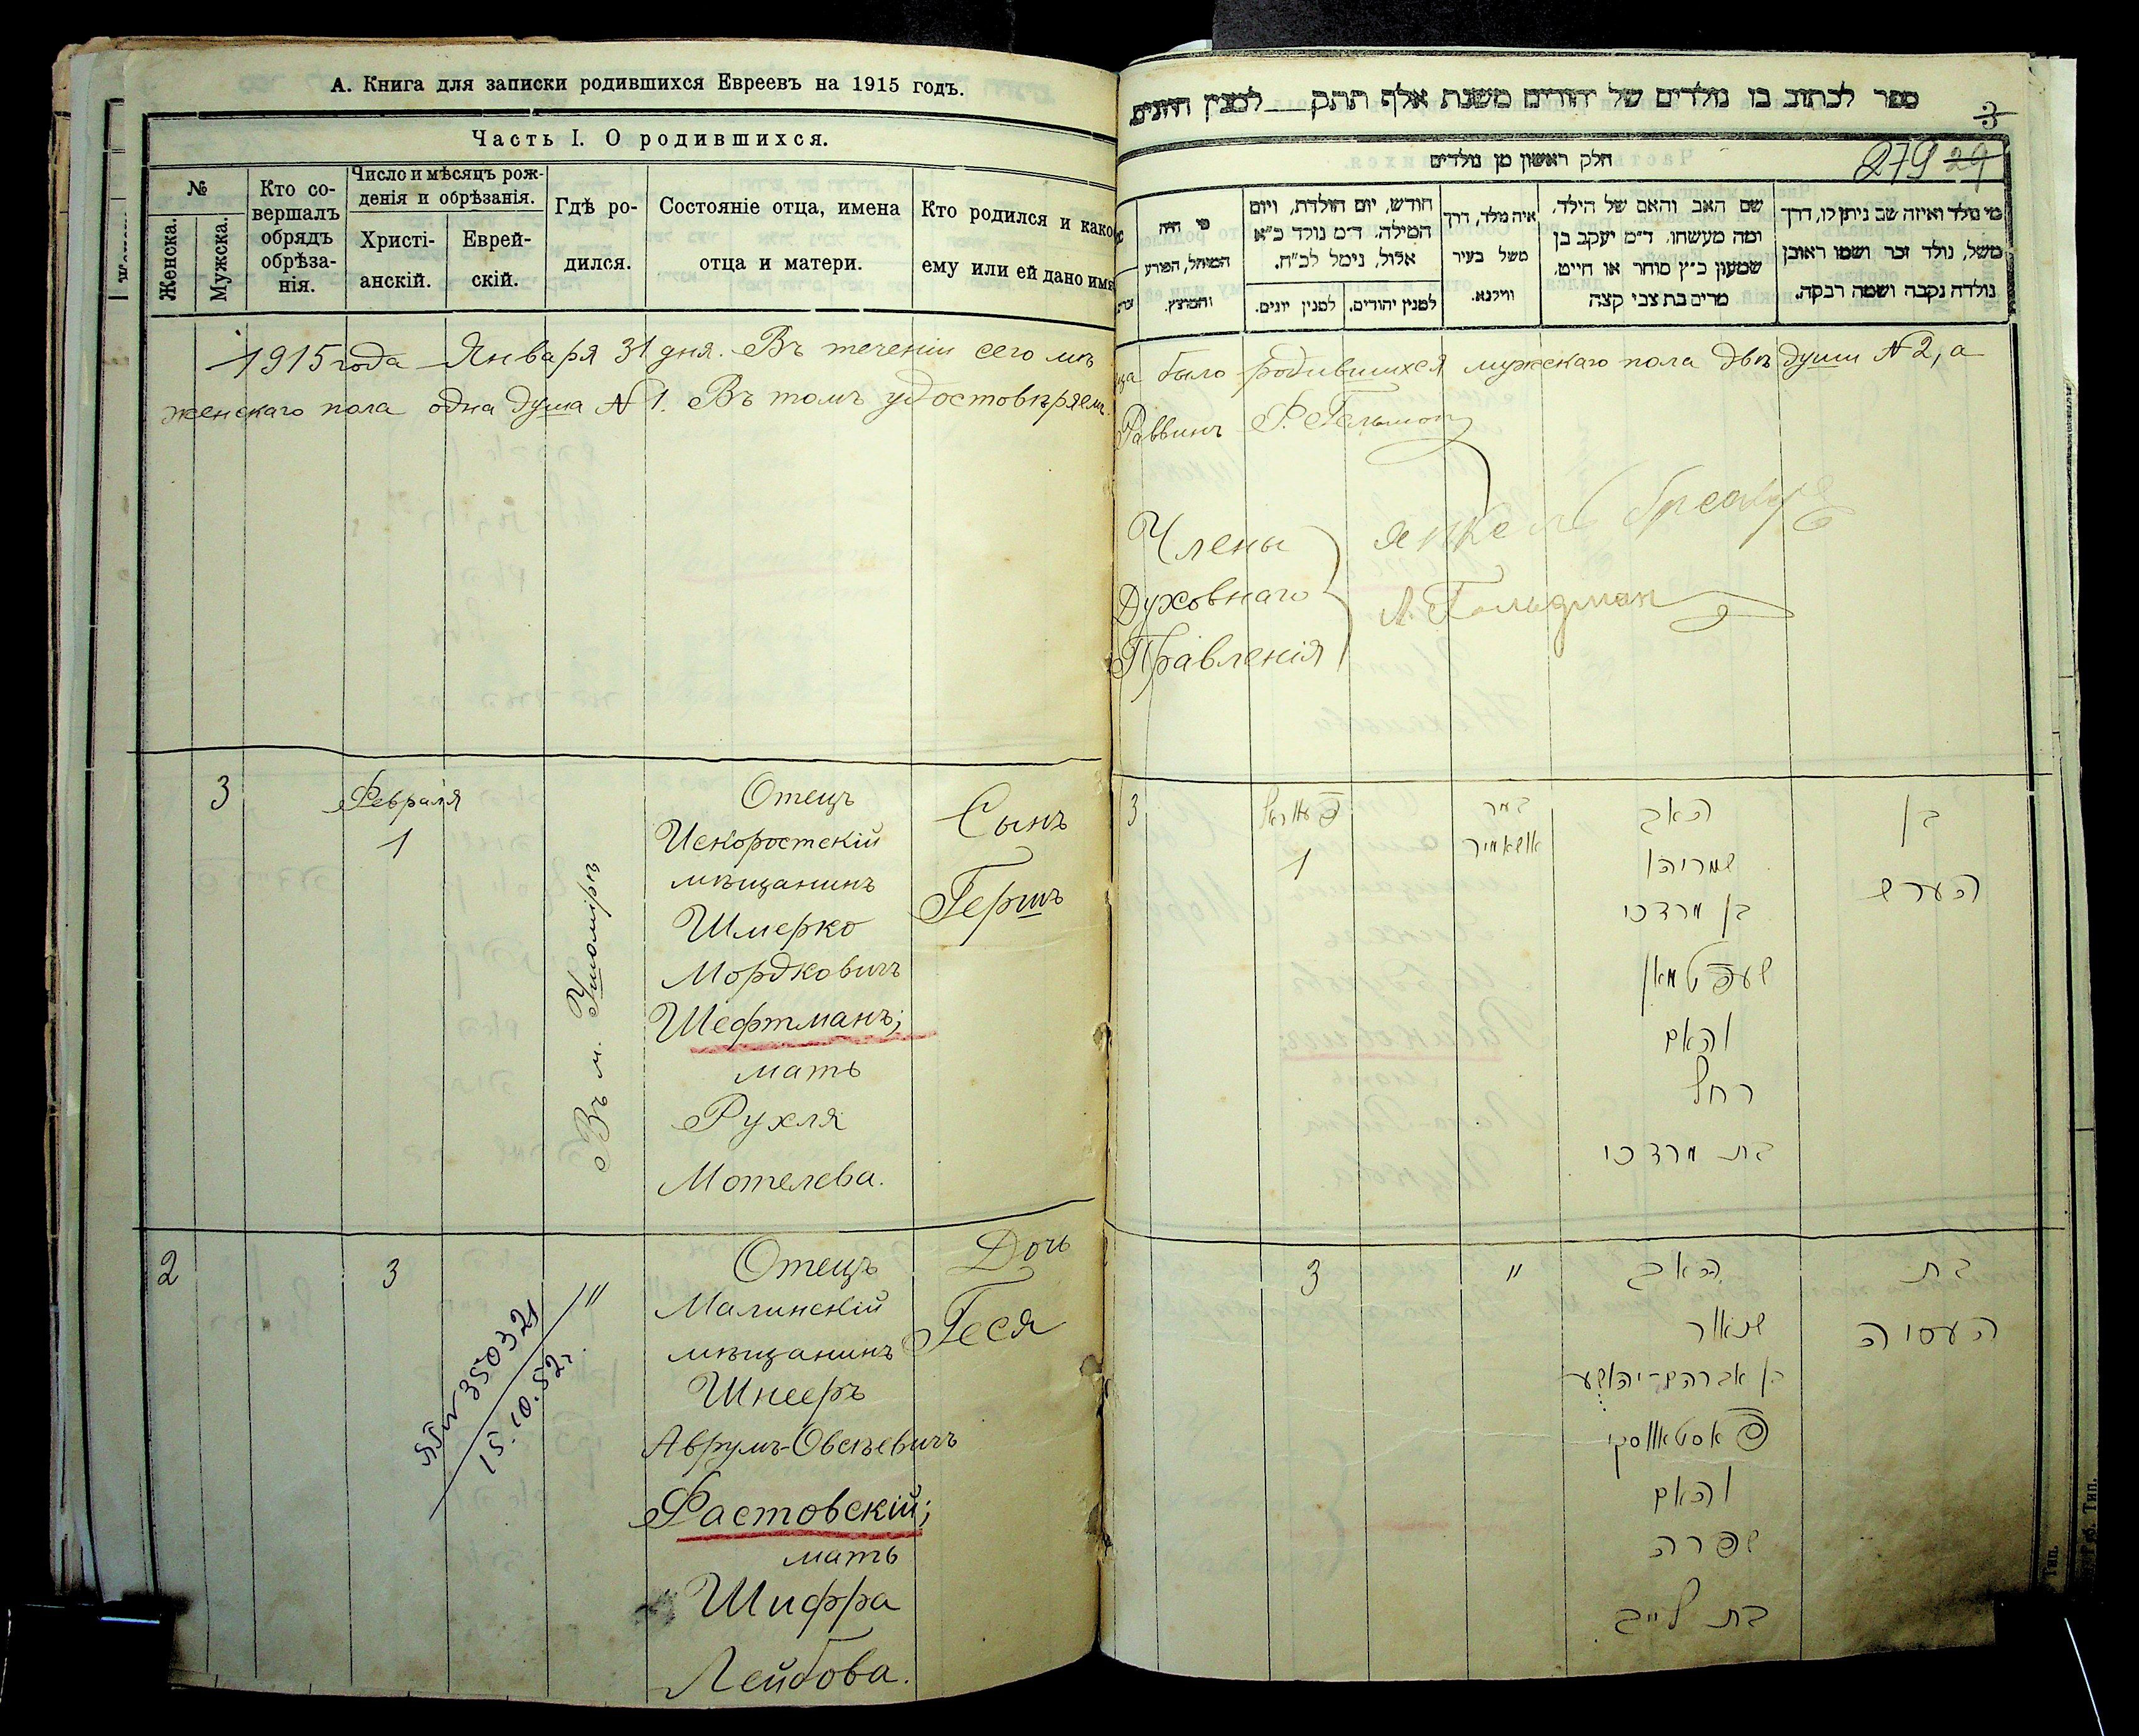 А. Книга для записки родившихся Евреевъ на 1915 годъ.
Часть I. О родившихся.
№
Женска.
Мужска.
Кто со-
вершалъ
обрядъ
обрѣза-
нія.
Число и мѣсяцъ рож-
денія и обрѣзанія.
Христі-
анскій.
Еврей-
скій.
Гдѣ ро-
дился.
Состояніе отца, имена
отца и матери.
Кто родился и како
ему или ей дано имя
1915 года Января 31 дня. Въ теченіи сего мѣ
женскаго пола одна душа № 1. Въ томъ удостовѣряемъ.
3
Февраля
1
Въ м. Ушомірѣ
Отецъ
Искоростскій
мѣщанинъ
Шмерко
Мордковичъ
Шефтманъ;
мать
Рухля
Мотелева.
Сынъ
Гершъ
2
3
"
350321
15.10.52г.
Отецъ
Малинскій
мѣщанинъ
Шнееръ
Аврумъ-Овсѣевичъ
Фастовскій;
мать
Шифра
Лейбова.
Дочь
Геся
ספר לכתוב בו נולדים של יהודים משנת אלף תתק לסנין הזונים
3
חלק ראשון מן נולדים
279 29
מי נולד ואיזה שם ניתן לו, דרך
משל, נולד זכר ושמו ראובן
נולדה נקבה ושמה רבקה.
שם האב והאם של הילד,
ומה מעשהו, ד״מ יעקב בן
שמעון כ״ץ סוחר או חייט,
מרים בת צבי קצה
איה נולד, דרך
משל בעיר
ווילנא.
חודש, יום הולדת, ויום
המילה, ד״מ נולד כ״א
אלול, נימל לכ״ח.
למנין יהודים.
למנין יונים.
מי היה
המוהל, הפורע
והמוצץ.
ца было родившихся мужскаго пола двѣ души № 2, а
Раввинъ Ф. Гельман
Члены
Духовнаго
Правленія
Янкель
Л. Гольдман
3
פעווראל
1
במר
אושאמיר
האב
שמריהו
בן מרדכי
שעפטמאן
והאם
רחל
בת מרדכי
בן
הערש
3
"
האב
שניאור
בן אברהם-יהושע
פאסטאווסקי
והאם
שפרה
בת לייב
בת
העסיה